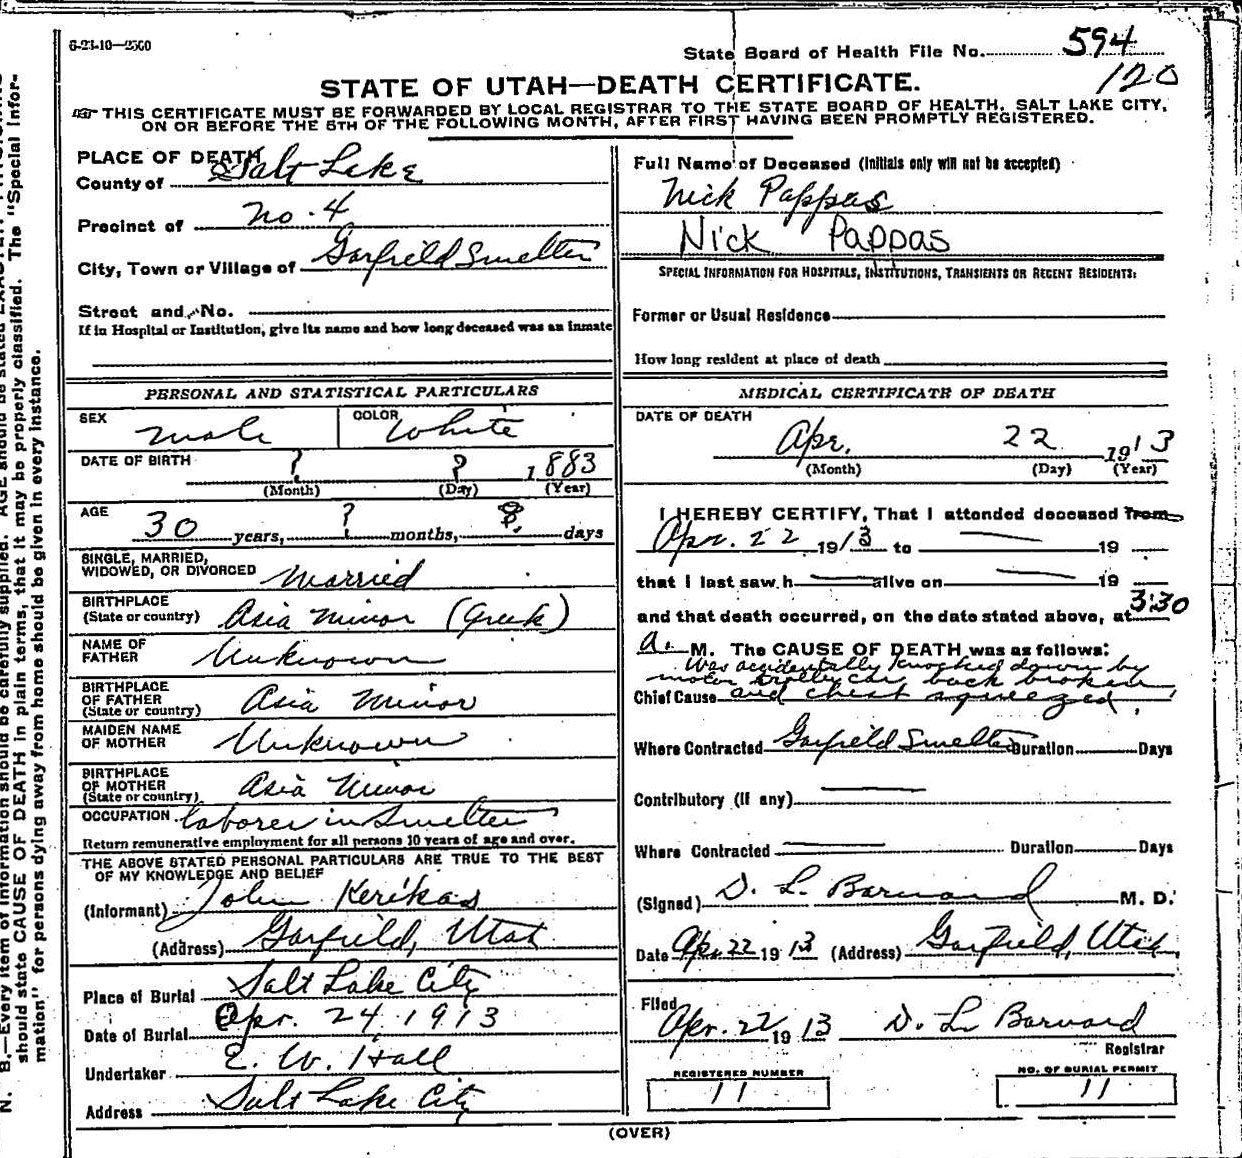 6-23-10—2500
State Board of Health File No. 594
120
STATE OF UTAH—DEATH CERTIFICATE.
THIS CERTIFICATE MUST BE FORWARDED BY LOCAL REGISTRAR TO THE STATE BOARD OF HEALTH, SALT LAKE CITY,
ON OR BEFORE THE 5TH OF THE FOLLOWING MONTH, AFTER FIRST HAVING BEEN PROMPTLY REGISTERED.
PLACE OF DEATH
County of Salt Lake
Precinct of No. 4
City, Town or Village of Garfield Smelter
Street and No.
If in Hospital or Institution, give its name and how long deceased was an inmate
PERSONAL AND STATISTICAL PARTICULARS
SEX male COLOR White
DATE OF BIRTH ? ? 1883
(Month) (Day) (Year)
AGE
30 years, ? months, ? days
SINGLE, MARRIED,
WIDOWED, OR DIVORCED Married
BIRTHPLACE
(State or country) Asia Minor (Greek)
NAME OF
FATHER Unknown
BIRTHPLACE
OF FATHER
(State or country) Asia Minor
MAIDEN NAME
OF MOTHER Unknown
BIRTHPLACE
OF MOTHER
(State or country) Asia Minor
OCCUPATION laborer in Smelter
Return remunerative employment for all persons 10 years of age and over.
THE ABOVE STATED PERSONAL PARTICULARS ARE TRUE TO THE BEST
OF MY KNOWLEDGE AND BELIEF
(Informant) John Kerikas
(Address) Garfield, Utah
Place of Burial Salt Lake City
Date of Burial Apr. 24, 1913
Undertaker E. W. Hall
Address Salt Lake City
Full Name of Deceased (Initials only will not be accepted)
Nick Pappas
Nick Pappas
SPECIAL INFORMATION FOR HOSPITALS, INSTITUTIONS, TRANSIENTS OR RECENT RESIDENTS:
Former or Usual Residence
How long resident at place of death
MEDICAL CERTIFICATE OF DEATH
DATE OF DEATH
Apr. 22 1913
(Month) (Day) (Year)
I HEREBY CERTIFY, That I attended deceased from
Apr. 22 1913 to 19
that I last saw h alive on 19
and that death occurred, on the date stated above, at 3:30
A. M. The CAUSE OF DEATH was as follows:
Was accidentally knocked down by
motor trolley car back broken
Chief Cause and chest squeezed.
Where Contracted Garfield Smelter Duration Days
Contributory (if any)
Where Contracted Duration Days
(Signed) D. L. Barnard M. D.
Date Apr. 22 1913 (Address) Garfield, Utah
Filed
Apr. 22 1913 D. L. Barnard
Registrar
REGISTERED NUMBER NO. OF BURIAL PERMIT
11 11
(OVER)
N. B.—Every item of information should be carefully supplied. AGE should be stated
should state CAUSE OF DEATH in plain terms, that it may be properly classified. The "Special Infor-
mation" for persons dying away from home should be given in every instance.